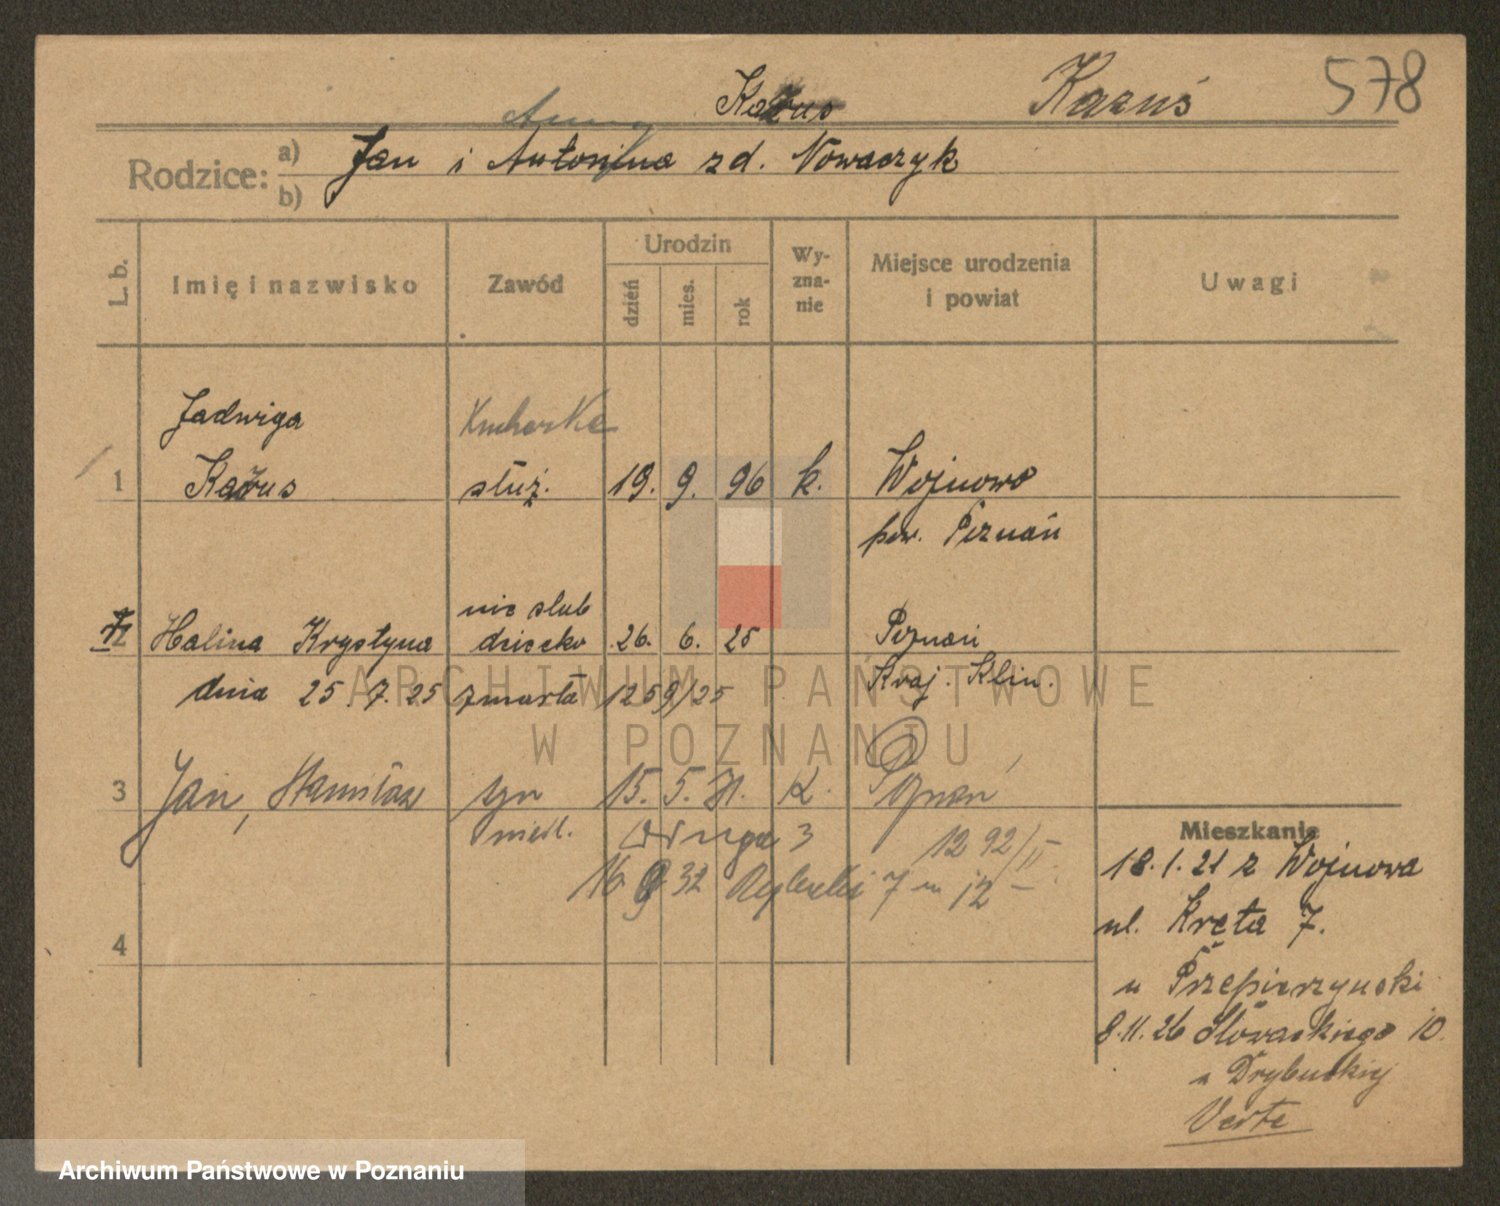 Kazus Kazuś 578
Anna
Rodzice: a) Jan i Antonina zd. Nowaczyk
b)
L. b. Imię i nazwisko Zawód Urodzin dzień mies. rok Wy-zna-nie Miejsce urodzenia i powiat Uwagi
Jadwiga Kucharka
1 Kazus służ. 19. 9. 96 k. Wojnowo
pow. Poznań
nie slub
2 Halina Krystyna dziecko 26. 6. 25 Poznań
dnia 25.7.25 zmarła 1259/25 Kraj. Klin.
3 Jan, Stanisław syn 15. 5. 31. k. Poznań
nieśl. Druga 3 1292/II
16 9 32 7 m 12
4
Mieszkanie
18.1.21 z Wojnowa
ul. Kręta 7.
u Przepierzynski
8.11.26 Słowackiego 10.
u Drybuskiej
Verte
ARCHIWUM PAŃSTWOWE
W POZNANIU
Archiwum Państwowe w Poznaniu